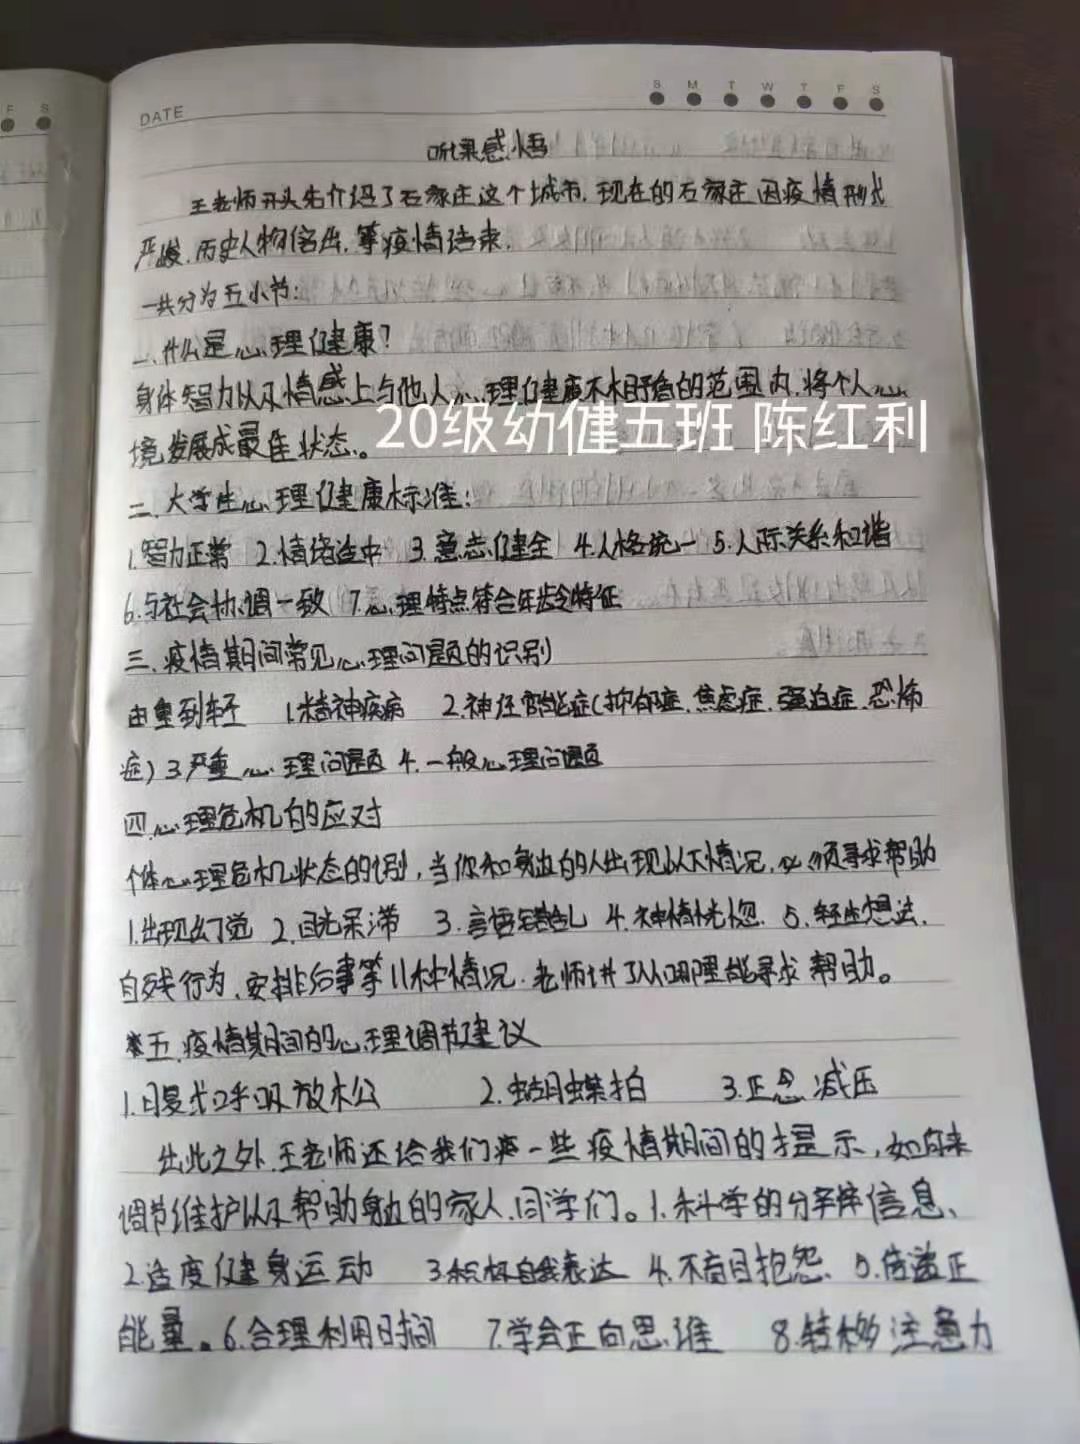 DATE
S M T W T F S
F S
听课感悟
王老师开头先介绍了石家庄这个城市,现在的石家庄因疫情形式
严峻,历史人物倍出,等疫情结束.
一共分为五小节:
一、什么是心理健康?
身体智力以及情感上与他人心理健康不相矛盾的范围内,将个人心
境发展成最佳状态。
20级幼健五班 陈红利
二、大学生心理健康标准:
1.智力正常 2.情绪适中 3.意志健全 4.人格统一 5.人际关系和谐
6.与社会协调一致 7.心理特点符合年龄特征
三.疫情期间常见心理问题的识别
由重到轻 1.精神疾病 2.神经官能症(抑郁症.焦虑症.强迫症.恐怖
症) 3.严重心理问题 4.一般心理问题
四.心理危机的应对
个体心理危机状态的识别,当你和身边的人出现以下情况,必须寻求帮助
1.出现幻觉 2.目光呆滞 3.言语错乱 4.神情恍惚. 5.轻生想法.
自残行为、安排后事等11种情况.老师讲了从哪里能寻求帮助。
*五.疫情期间的心理调节建议
1.腹式呼吸放松 2.蝴蝶拍 3.正念减压
出此之外.王老师还给我们一些疫情期间的提示,如何来
调节维护以及帮助身边的家人、同学们。1.科学的分辨信息、
2.适度健身运动 3.积极自我表达 4.不盲目抱怨. 5.传递正
能量。6.合理利用时间 7.学会正向思维 8.转移注意力